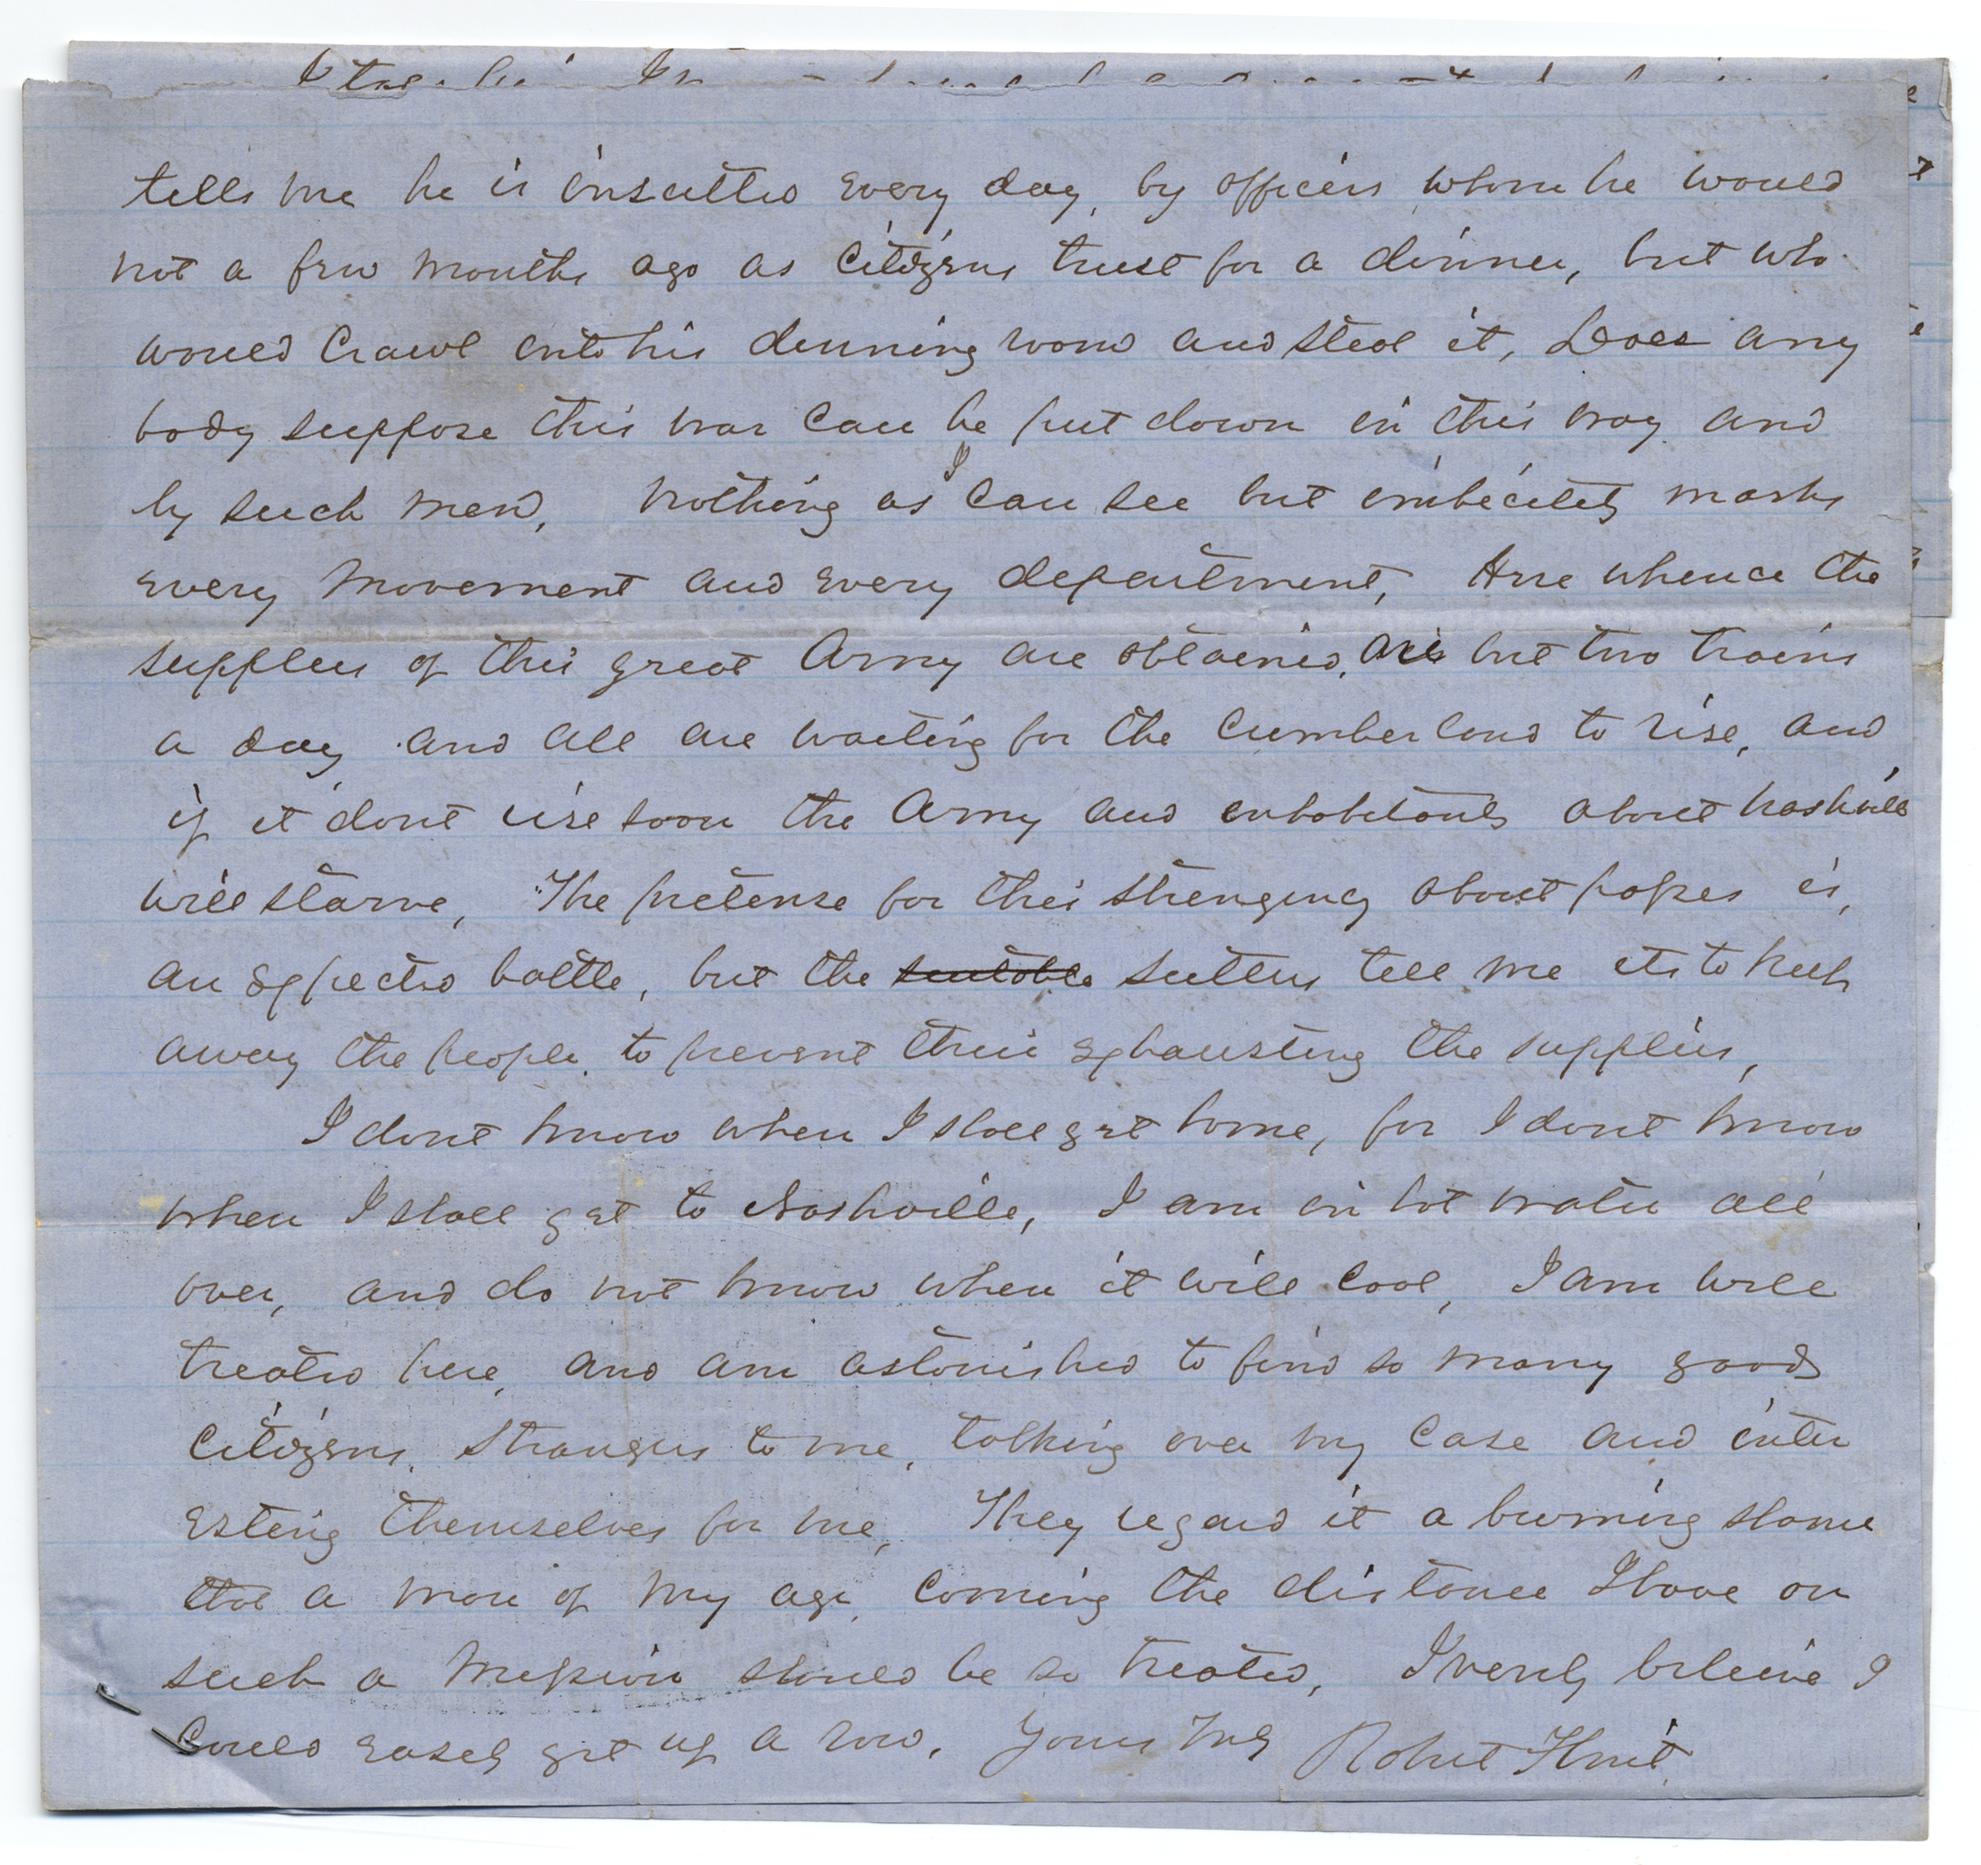 tells me he is insulted every day, by officers whom he would
not a few months ago as citizens trust for a dinner, but who
would crawl into his dinning room and steal it, Does any
body suppose this war can be put down in this way and
by such men, Nothing as I can see but imbecility marks
every movement and every department, Here whence the
supplies of this great Army are obtained, are but two trains
a day and all are waiting for the Cumberland to rise, and
if it dont rise soon the Army and inhabitants about Nashville
will starve, The pretense for this stringency about passes is,
an expected battle, but the sutlers tell me its to keep
away the people, to prevent their exhausting the supplies,
I dont know when I shall get home, for I dont know
when I shall get to Nashville, I am in hot water all
over, and do not know when it will cool, I am well
treated here, and am astonished to find so many good
citizens, strangers to me, talking over my case and inter
esting themselves for me, They regard it a burning shame
that a man of my age, coming the distance I have on
such a mission should be so treated, I verily believe I
could easily get up a row. Yours Truly Robert